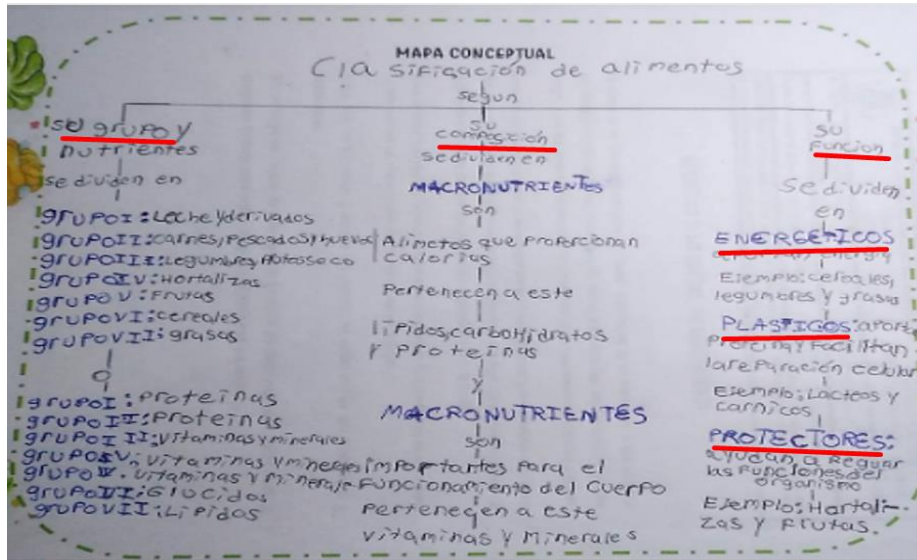 MAPA CONCEPTUAL
Clasificación de alimentos
segun
su grupo y
nutrientes
se dividen en
grupo I: Leche y derivados
grupo II: carnes, Pescados y huevos
grupo III: Legumbres,
grupo IV: Hortalizas
grupo V: Frutas
grupo VI: cereales
grupo VII: grasas
o
grupo I: Proteinas
grupo II: Proteinas
grupo III: Vitaminas y minerales
vitaminas y
vitaminas y
grupo VI: Glucidos
grupo VII: Lipidos
su
composición
se dividen en
MACRONUTRIENTES
son
que proporcionan
calorias
Pertenecen a este
lipidos, carbohidratos
y proteinas
y
MACRONUTRIENTES
son
importantes para el
Funcionamiento del cuerpo
Pertenecen a este
vitaminas y Minerales
su
Funcion
se dividen
en
ENERGETICOS
Ejemplo: cereales,
legumbres y grasas
PLASTICOS:
y Facilitan
la reparación celular
Ejemplo: Lacteos y
carnicos
PROTECTORES:
ayudan a
las Funciones del
organismo
Ejemplo: Hortali-
zas y Frutas.